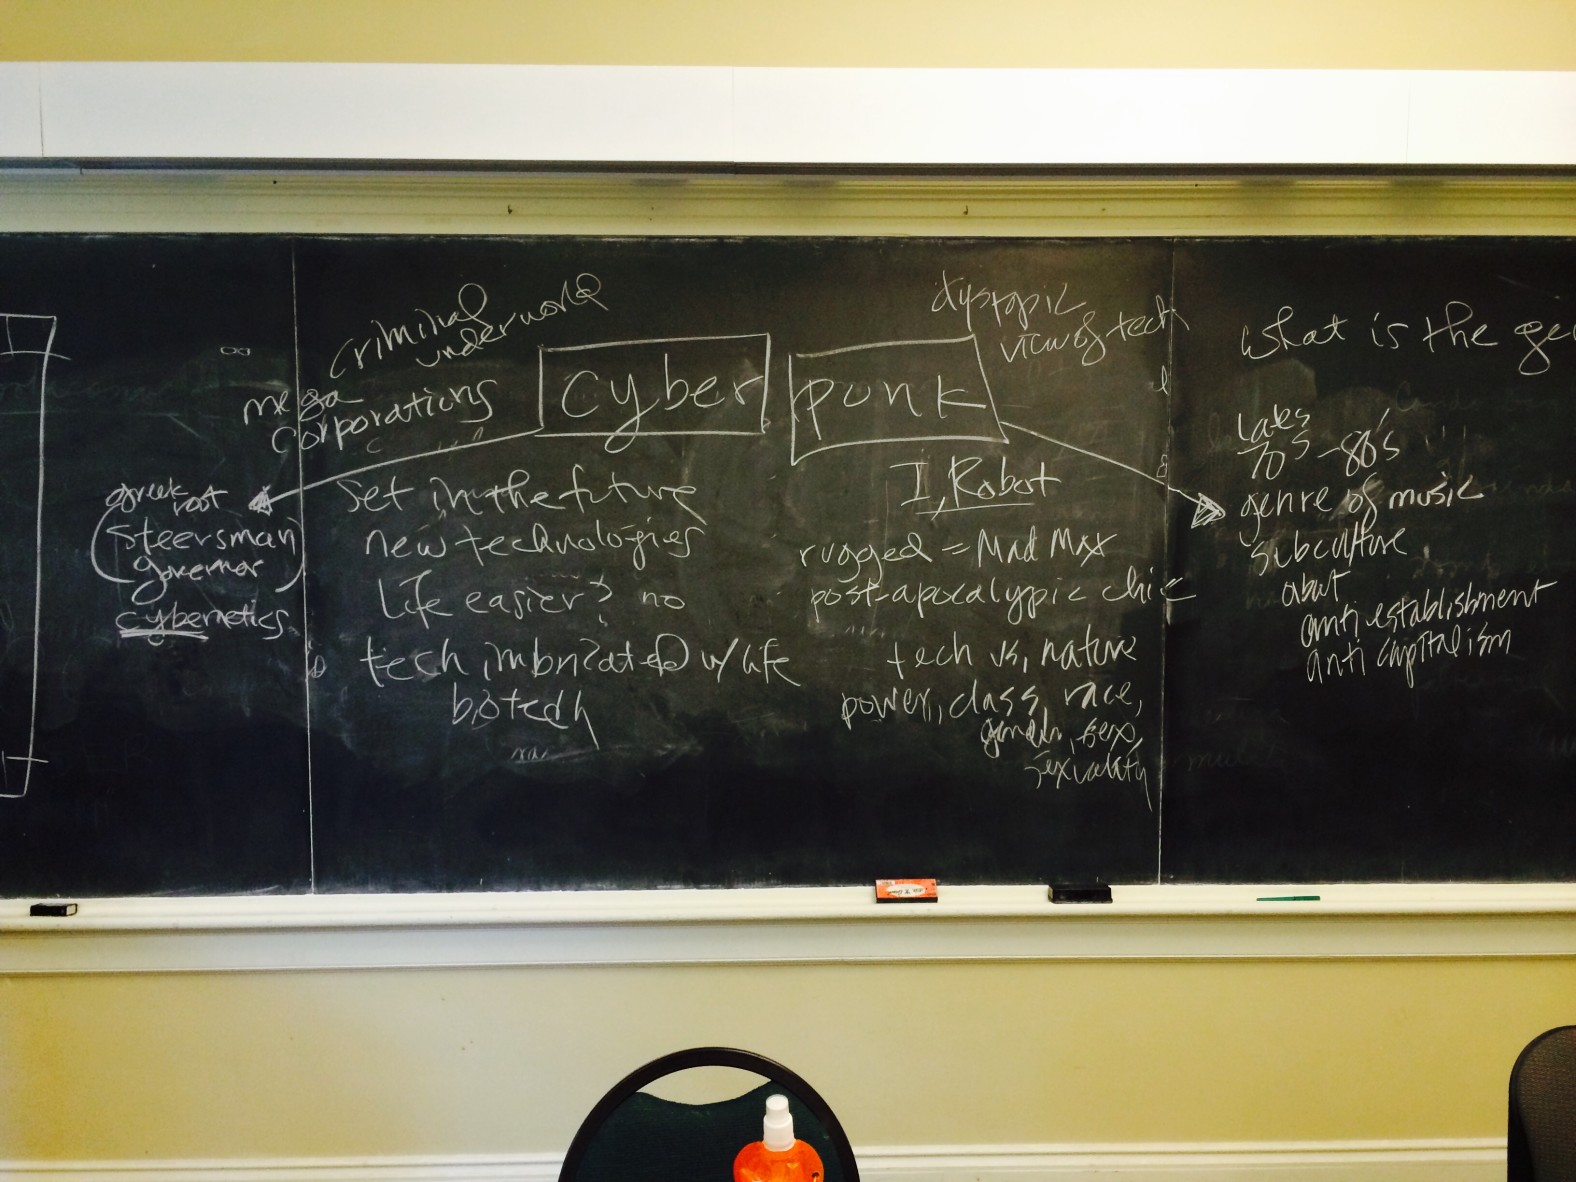 criminal
underworld
mega
corporations
cyber punk
dystopic
view of tech
what is the
greek
root
(steersman
governor)
cybernetics
set in the future
new technologies
life easier? no
tech imbricated w/ life
biotech
I, Robot
rugged = Mad Max
post-apocalyptic chic
tech vs. nature
power, class, race,
gender, sex,
sexuality
late
70s - 80's
genre of music
subculture
about
anti establishment
anti capitalism